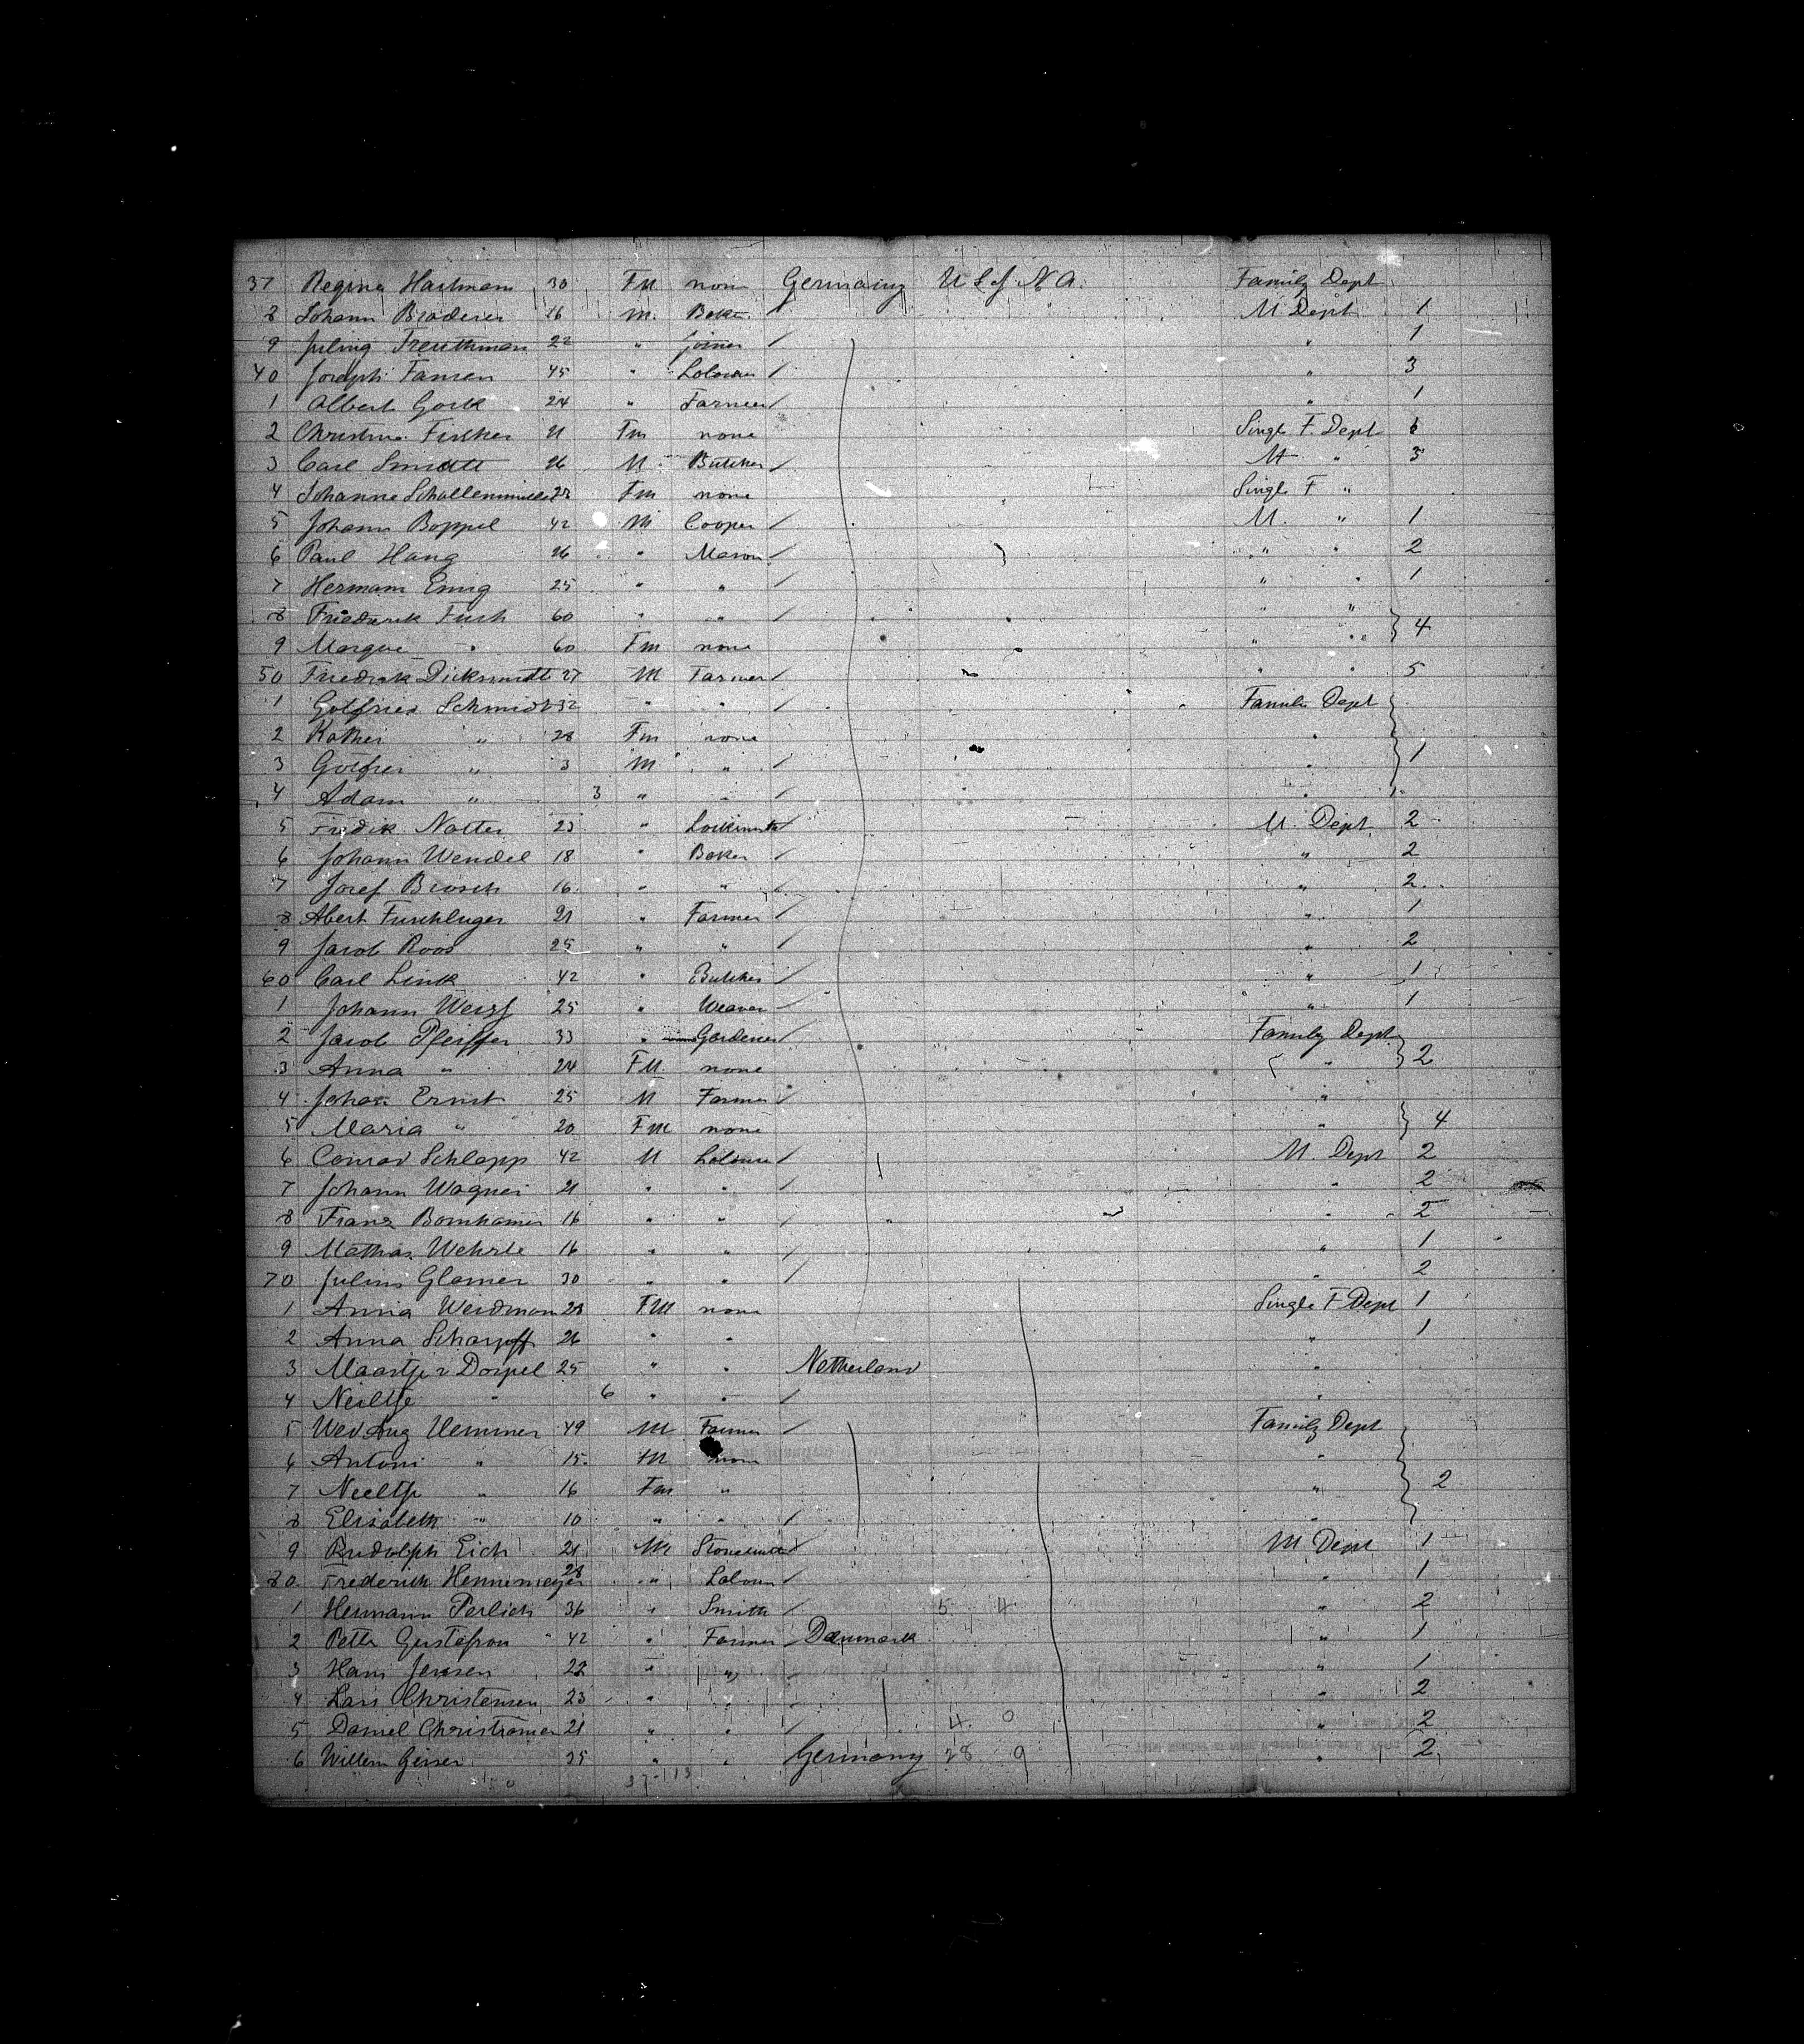 37 Regina Hartmann 30 Fm none Germany U S of N A. Family Dept
8 Johann Broderer 16 M. Baker M Dept 1
9 22 " Joiner " 1
40 Joseph Fansen 45 " " 3
1 Albert Gork 24 " Farmer " 1
2 Christine Fischer 21 Fm none Singl F. Dept 6
3 Carl Smidtt 26 M. Butcher M " 3
4 Johanna 28 Fm none Singl F "
5 Johann Boppel 42 M Cooper M. " 1
6 Paul Haug 26 " Mason " " 2
7 Hermann Emig 25 " " " " 1
8 Friederik Fish 60 " " " "
9 60 Fm none " " 4
50 Friedrik Dicksmidt 27 M Farmer " " 5
1 Gotfried Schmidt 32 " " Family Dept
2 Kather " 28 Fm none "
3 Gotfrei " 3 M " " 1
4 Adam " 3 " " "
5 Fredik Notter 23 " M. Dept 2
6 Johann Wendel 18 " Baker " 2
7 Josef Brosch 16 " " " 2
8 Abert 21 " Farmer " 1
9 Jacob Roos 25 " " " 2
60 Carl Link 42 " Butcher " 1
1 Johann Weiss 25 " Weaver " 1
2 Jacob Pfeiffer 33 " Gardener Family Dept
3 Anna " 24 FM none " 2
4 Johan Ernst 25 M Farmer "
5 Maria " 20 FM none " 4
6 Conrad Schlapp 42 M M. Dept 2
7 Johann Wagner 21 " " " 2
8 Franz Bornhamer 16 " " " 2
9 Mathias Wehrle 16 " " " 1
70 Julius Glamer 30 " " " 2
1 Anna Weidmann 28 FM none Single F Dept 1
2 Anna Scharpff 26 " " " 1
3 Maartje v Dorpel 25 " " Netherland "
4 Neeltje " 6 " " "
5 49 M Farmer Family Dept
6 Antoni " 15 M none "
7 Neeltje " 16 Fm " " 2
8 Elisabeth " 10 " " "
9 Rudolph Eich 21 M M Dept 1
80 Frederich Hennemeyer 28 " " 1
1 Hermann Perlich 36 " Smith 5 4 " 2
2 Petter Gustafson 42 " Farmer Danmark " 1
3 Hans Jensen 22 " " " 1
4 Lars Christensen 23 " " " 2
5 Daniel 21 " " 4 0 " 2
6 Willem Geiser 35 " " Germany 28 9 " 2